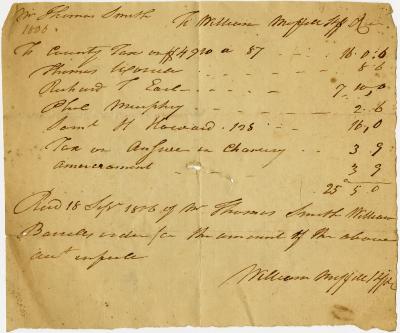 Mr Thomas Smith To William Meffitt Shff Dr
1806
To County Tax on £4920 a 87 16.0:6
Thomas 8 6
Richard T Earle 7 10,0
Phil Murphy 2 6
Saml H Howard. 128 16,0
Tax on Answer in Chancery 3 9
amercement 3 9
25 5 0
Recd 18 Sepr 1806 of Mr Thomas Smith William
Barrolls order for the amount of the above
acct in full
William Meffitt Shff